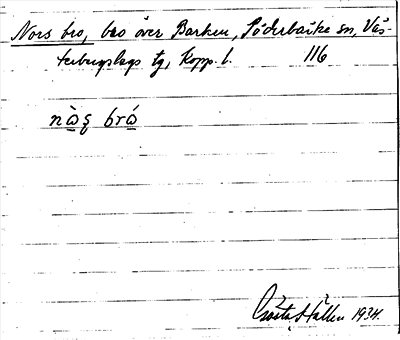 Nors bro, bro över Barken, Söderbärke sn, Väs-
terbergslags tg, Kopp. l. 116
nä̀ş brå̀
Gösta Hallen 1934.